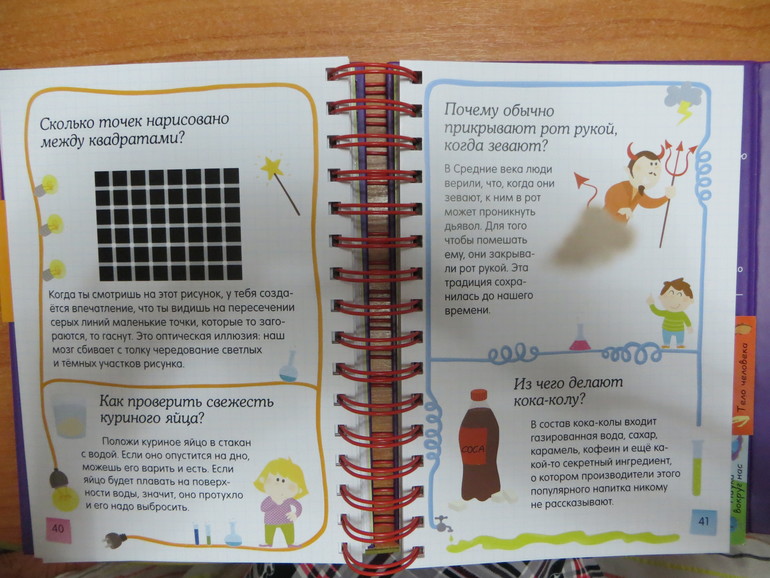 Сколько точек нарисовано
между квадратами?
Когда ты смотришь на этот рисунок, у тебя созда-
ётся впечатление, что ты видишь на пересечении
серых линий маленькие точки, которые то заго-
раются, то гаснут. Это оптическая иллюзия: наш
мозг сбивает с толку чередование светлых
и тёмных участков рисунка.
Как проверить свежесть
куриного яйца?
Положи куриное яйцо в стакан
с водой. Если оно опустится на дно,
можешь его варить и есть. Если
яйцо будет плавать на поверх-
ности воды, значит, оно протухло
и его надо выбросить.
40
Почему обычно
прикрывают рот рукой,
когда зевают?
В Средние века люди
верили, что, когда они
зевают, к ним в рот
может проникнуть
дьявол. Для того
чтобы помешать
ему, они закрыва-
ли рот рукой. Эта
традиция сохра-
нилась до нашего
времени.
Из чего делают
кока-колу?
COCA
В состав кока-колы входит
газированная вода, сахар,
карамель, кофеин и ещё ка-
кой-то секретный ингредиент,
о котором производители этого
популярного напитка никому
не рассказывают.
41
Тело человека
вокруг нас